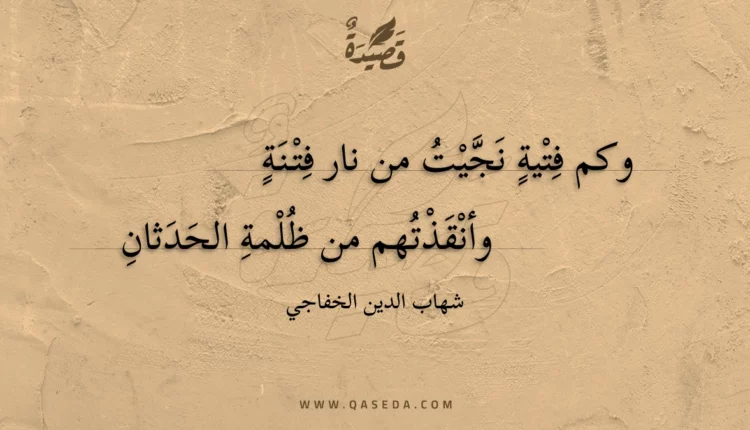 قَصِيْدَةٌ
وكم فِتْيةٍ نَجَّيْتُ من نار فِتْنَةٍ
وأنْقَذْتُهم من ظُلْمةِ الحَدَثانِ
شهاب الدين الخفاجي
WWW.QASEDA.COM